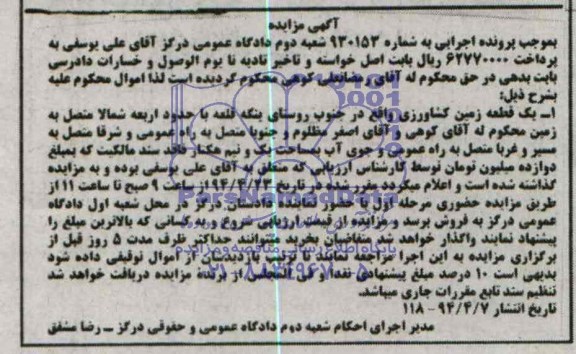 آگهی مزایده
بموجب پرونده اجرایی به شماره ۹۳۰۱۵۳ شعبه دوم دادگاه عمومی درگز آقای علی یوسفی به
پرداخت ۶۲۷۷۰۰۰۰ ریال بابت اصل خواسته و تاخیر تادیه تا یوم الوصول و خسارات دادرسی
بابت بدهی در حق محکوم له آقای رمضانعلی کوهی محکوم گردیده است لذا اموال محکوم علیه
بشرح ذیل:
۱ـ یک قطعه زمین کشاورزی واقع در جنوب روستای ینگه قلعه با حدود اربعه شمالا متصل به
زمین محکوم له آقای کوهی و آقای اصغر مظلوم و جنوبا متصل به راه عمومی و شرقا متصل به
مسیر و غربا متصل به راه عمومی و جوی آب بمساحت یک و نیم هکتار فاقد سند مالکیت که بمبلغ
دوازده میلیون تومان توسط کارشناس ارزیابی که متعلق به آقای علی یوسفی بوده و به مزایده
گذاشته شده است و اعلام میگردد مقرر شده در تاریخ ۹۴/۴/۲۳ از ساعت ۹ صبح تا ساعت ۱۱ از
طریق مزایده حضوری مرحله اول با حضور نماینده دادستان در محل شعبه اول دادگاه
عمومی درگز به فروش برسد و مزایده از قیمت ارزیابی شروع و به کسانی که بالاترین مبلغ را
پیشنهاد نمایند واگذار خواهد شد متقاضیان بخرید میتوانند حداکثر ظرف مدت ۵ روز قبل از
برگزاری مزایده به این اجرا مراجعه نمایند تا ترتیب بازدیدشان از اموال توقیفی داده شود
بدیهی است ۱۰ درصد مبلغ پیشنهادی نقدا و فی المجلس از برنده مزایده دریافت خواهد شد
تنظیم سند تابع مقررات جاری میباشد.
تاریخ انتشار ۹۴/۴/۷ - ۱۱۸
مدیر اجرای احکام شعبه دوم دادگاه عمومی و حقوقی درگز ـ رضا مشفق
ParsNamadData
پایگاه اطلاع رسانی مناقصه و مزایده